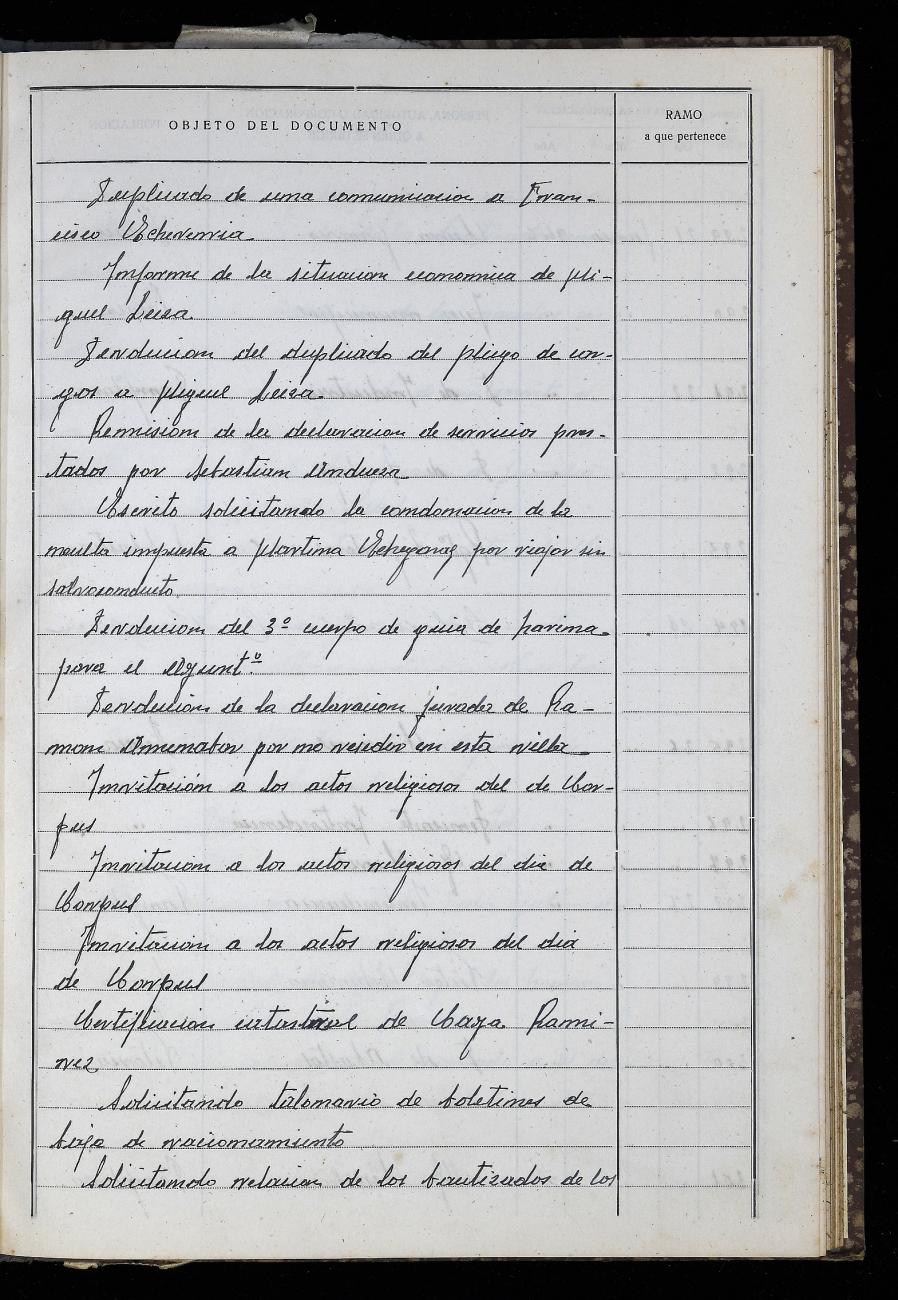 OBJETO DEL DOCUMENTO
RAMO
a que pertenece
Duplicado de una comunicacion a Fran-
cisco Echeverria
Informe de la situacion economica de Mi-
guel Leiza
Devolucion del duplicado del pliego de car-
gos a Miguel Leiza.
Remision de la declaracion de servicios pres-
tados por Sebastian Andueza
Escrito solicitando la condonacion de la
multa impuesta a Martina Echegaray por viajar sin
salvoconducto
Devolucion del 3º cuerpo de guia de harina
para el Ayuntº
Devolucion de la declaracion jurada de Ra-
mon Amenabar por no residir en esta villa
Invitación a los actos religiosos del de Cor-
pus
Invitacion a los actos religiosos del dia de
Corpus
Invitacion a los actos religiosos del dia
de Corpus
Certificacion catastral de Caya Rami-
rez
Solicitando talonario de boletines de
baja de racionamiento
Solicitando relacion de los bautizados de los